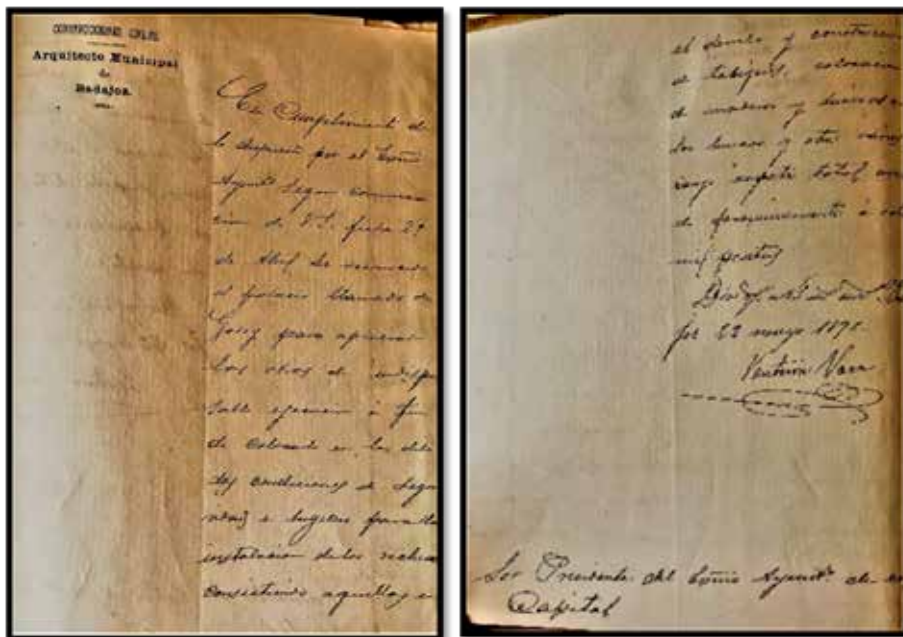 CONSTRUCCIONES CIVILES
Arquitecto Municipal
de
Badajoz.
En Cumplimiento de
lo dispuesto por el Excmo
Ayunto. segun comunica
cion de V.S. fecha 29
de Abril he reconocido
el llamado de
para apreciar
las obras de indispen
sable ejecucion á fin
de colocarlo en las debi
das condiciones de segu
ridad e higiene para la
instalacion de los reclusos
consistiendo aquellas en
el y construccion
de tabiques, colocacion
de maderas y
los huecos y otras varias
total
de proximamente á
mil pesetas
Dios gue a V.S. Bada
joz 22 mayo 189
Ventura Vaca
Sor Presidente del Excmo Ayunto. de es
Capital